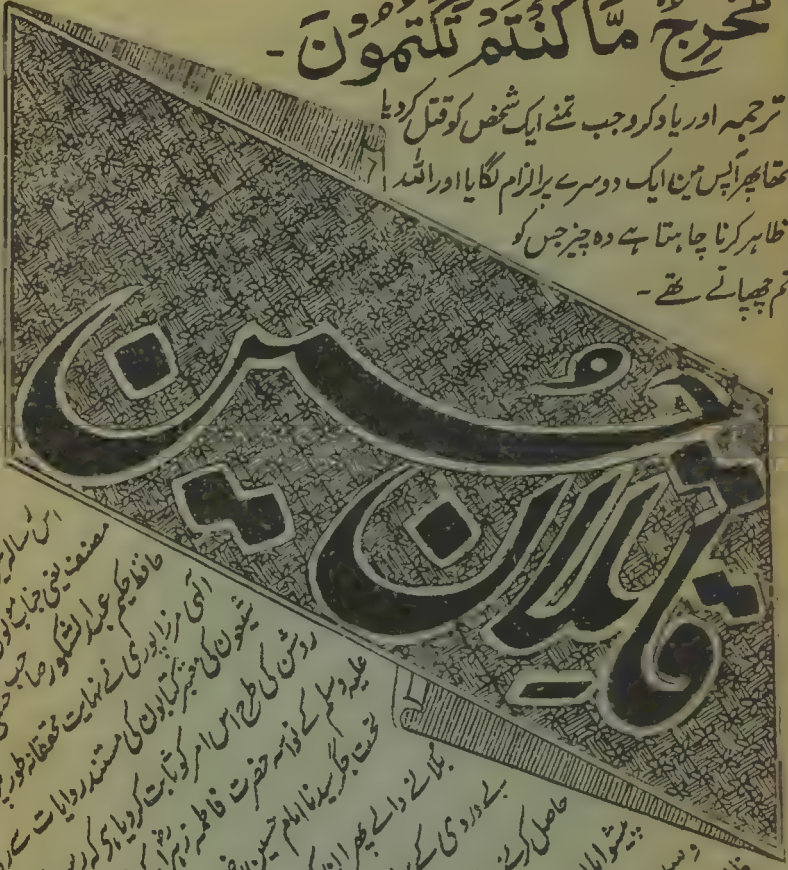 مُخْرِجٌ مَّا كُنْتُمْ تَكْتُمُوْنَ -
ترجمہ اور یاد کرو جب تمنے ایک شخص کو قتل کردیا
تھا پھر آپس مین ایک دوسرے پر الزام لگایا اور اللہ
ظاہر کرنا چاہتا ہے وہ چیز جس کو
تم چھپاتے تھے -
قاتلان حُسین
اس رسالہ
مصنف یعنی جناب مولوی
حافظ حکیم عبدالشکور صاحب حنفی
مرزاپوری نے نہایت محققانہ طور پر
شیعون کی معتبر کتابون کی مستند روایات سے
روشن کی طرح اس امر کو ثابت کردیا ہے کہ
علیہ وسلم کے نواسہ حضرت فاطمہ زہرا
لخت جگر سیدنا امام حسین
بلانے والے پھر
بے دردی کے
حاصل کرنے
پیشوا